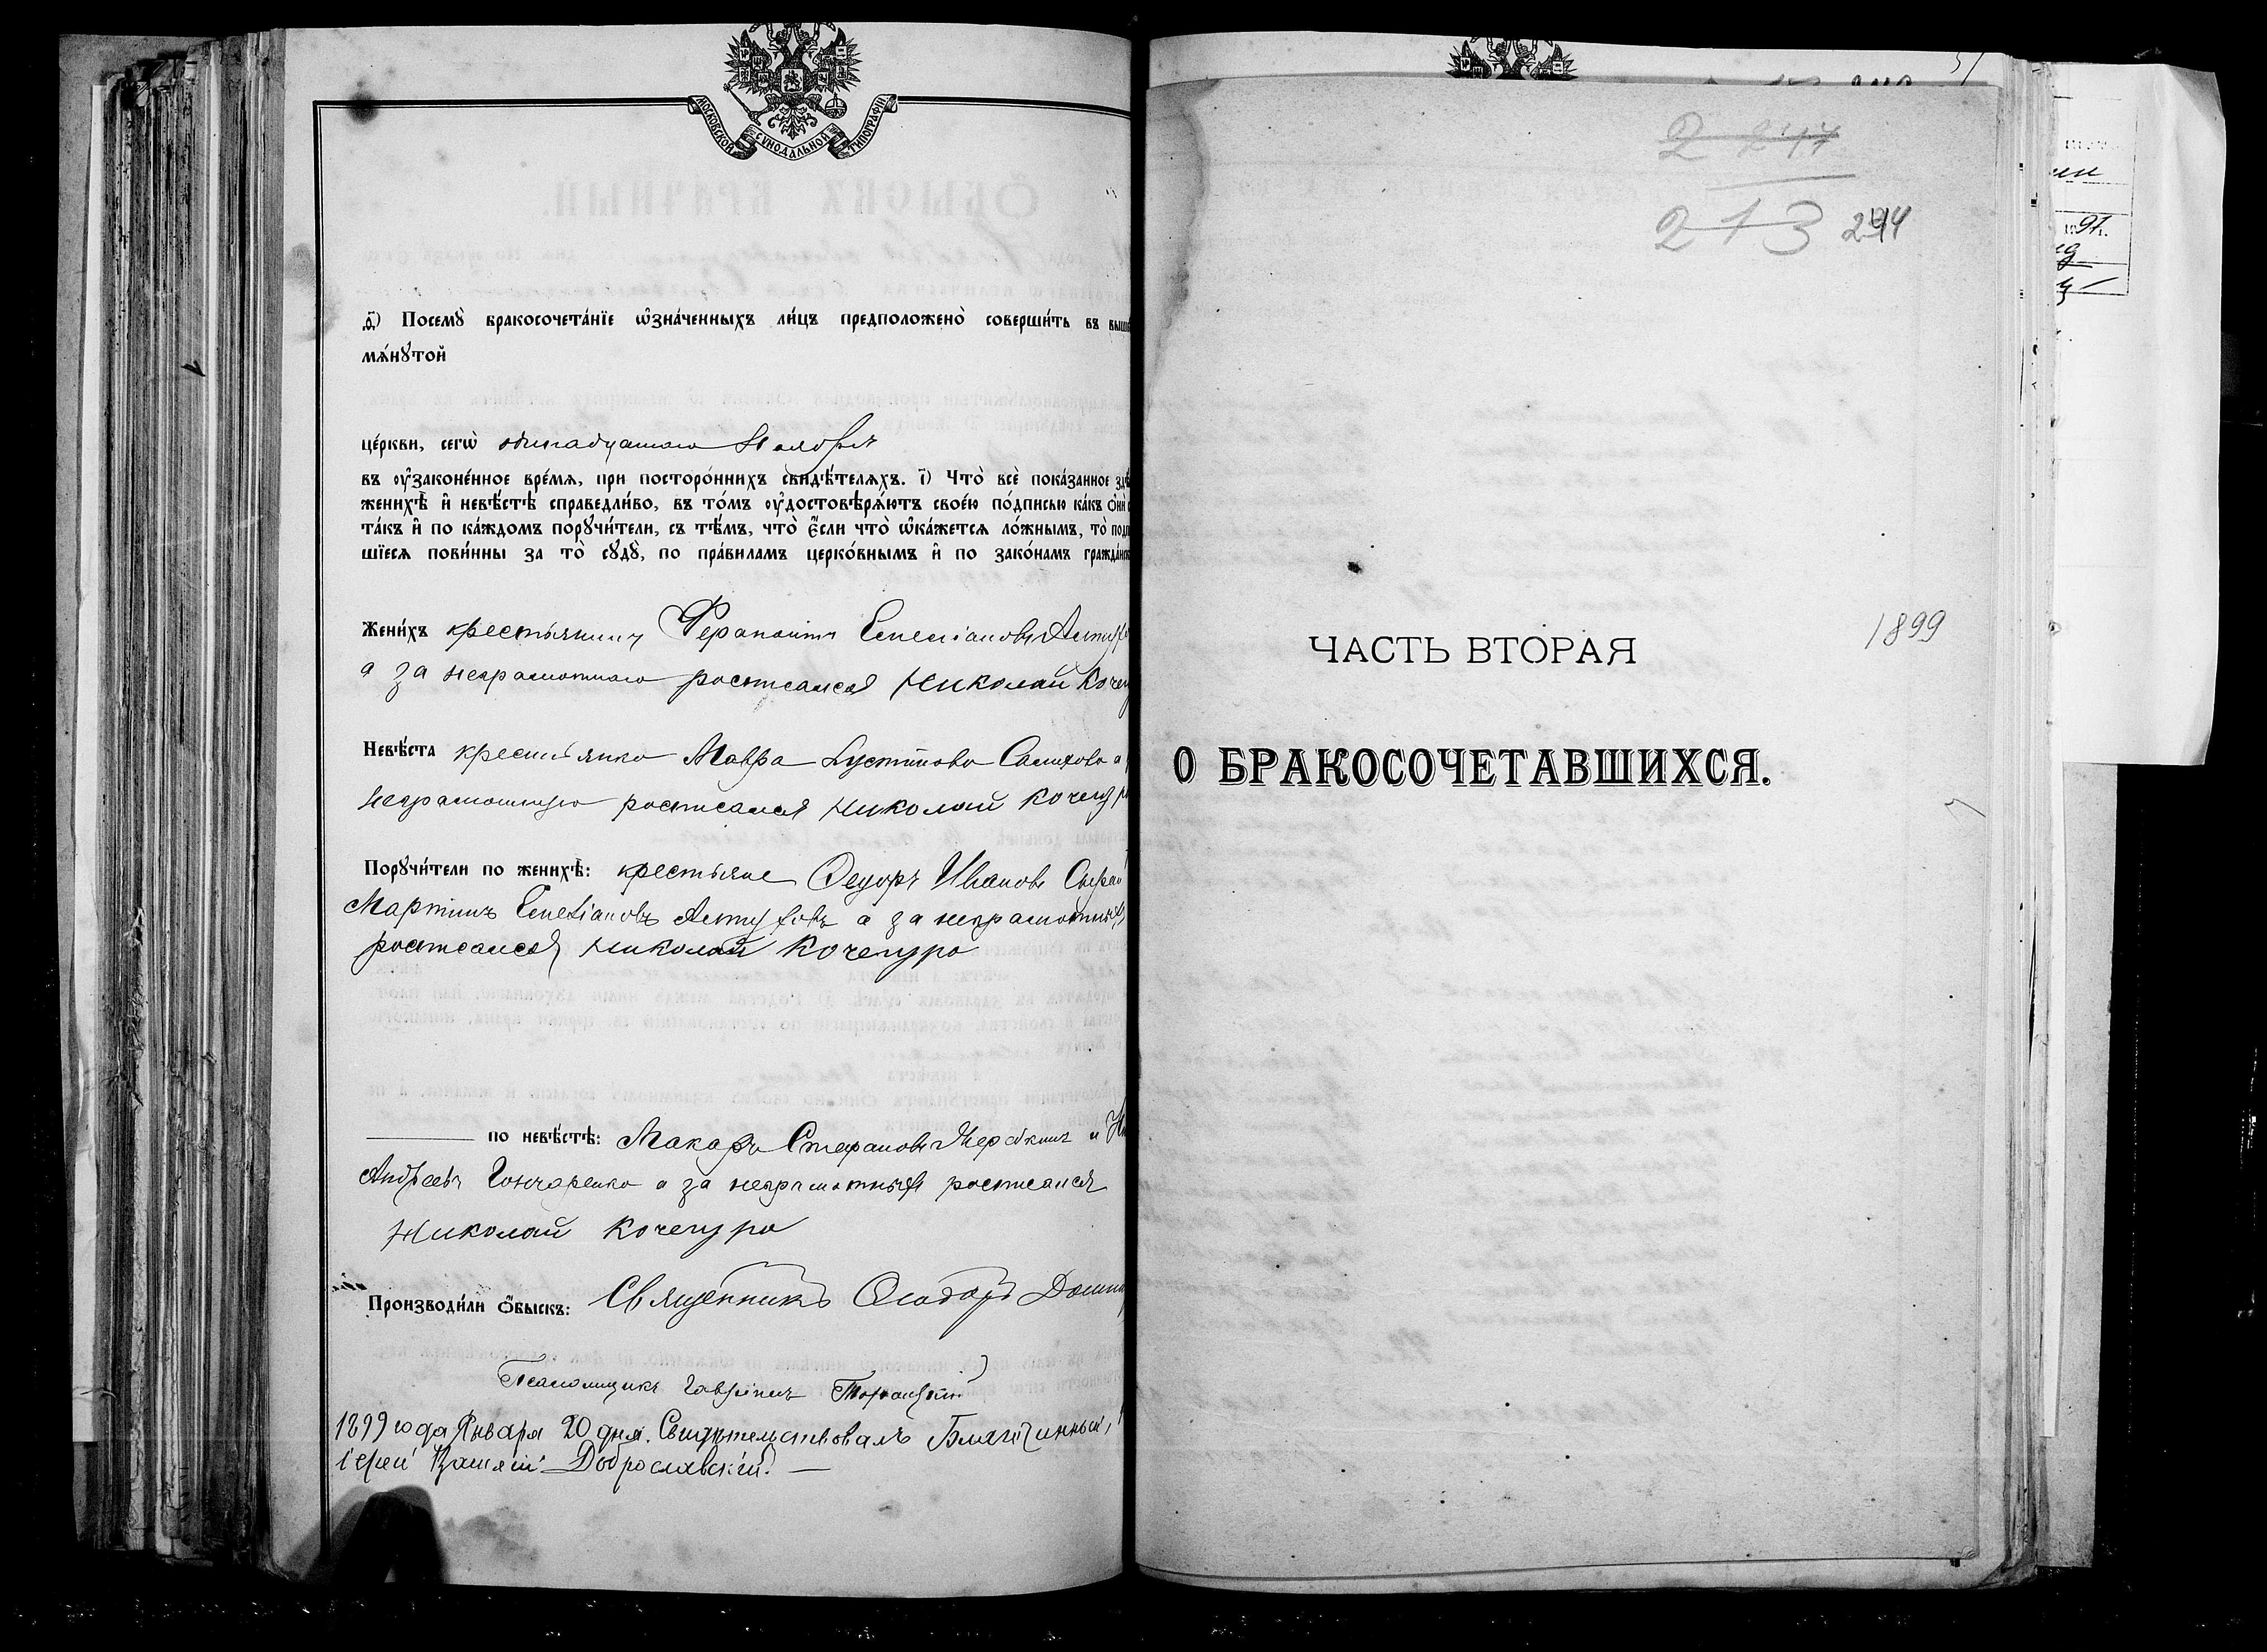 МОСКОВСКОЙ СѴНОДАЛЬНОЙ ТИПОГРАФІИ
ѳ҃) Посемꙋ̀ бракосочета́нїе ѡ҆зна́ченныхъ ли́цъ предположено̀ соверши́ть въ выше
мѧ́нꙋтой
це́ркви, сегѡ̀ одинадцатаго Ноября
въ ᲂу҆законе́нное вре́мѧ, при посторо́ннихъ свидѣ́телѧхъ. і҃) Что̀ всѐ пока́занное здѣ
женихѣ̀ и҆ невѣ́стѣ справедли́во, въ то́мъ ᲂу҆достовѣрѧ́ютъ свое́ю по́дписью ка́къ ѻ҆нѝ с
та́къ и҆ по ка́ждомъ порꙋчи́тели, съ тѣ́мъ, что̀ є҆́сли что̀ ѡ҆ка́жетсѧ ло́жнымъ, то̀ подп
шїесѧ пови́нны за то̀ сꙋдꙋ̀, по пра́виламъ церко́внымъ и҆ по зако́намъ гражда́нск
Жени́хъ крестьянинъ Ферапонтъ Емеліановъ
а за неграмотнаго росписался Николай Кочер
Невѣ́ста крестьянка Мавра Іустинова а
неграмотную росписался Николай Кочегур
Порꙋчи́тели по женихѣ̀: крестьяне Ѳедоръ Ивановъ
Мартинъ Емеліановъ а за неграмотныхъ
росписался Николай Кочегура
по невѣ́стѣ: Макаръ Стефановъ и
Андреевъ Гончаренко а за неграмотныхъ росписался
Николай Кочегура
Производи́ли ѻ҆́быскъ: Священникъ Ѳеодоръ
Псаломщикъ Гавріилъ
1899 года Января 20 дня. Свидѣтельствовалъ Благочинный,
Іерей Доброславскій.
2 247
213 244
1899
ЧАСТЬ ВТОРАЯ
О БРАКОСОЧЕТАВШИХСЯ.